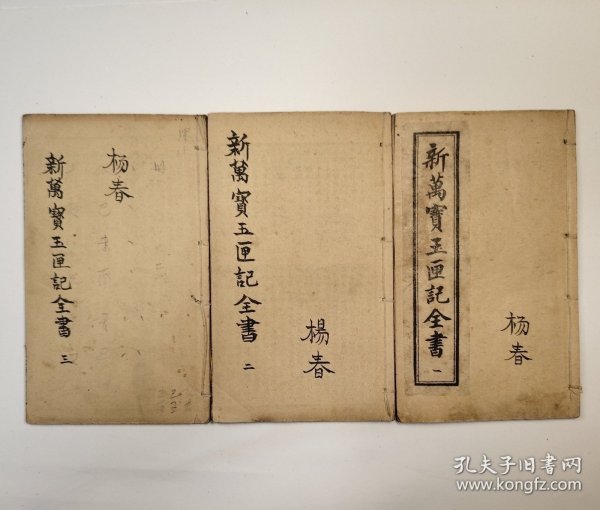 新萬寳玉匣記全書 一
杨春
新萬寳玉匣記全書 二
楊春
杨春
新萬寳玉匣記全書 三
孔夫子旧书网
www.kongfz.com